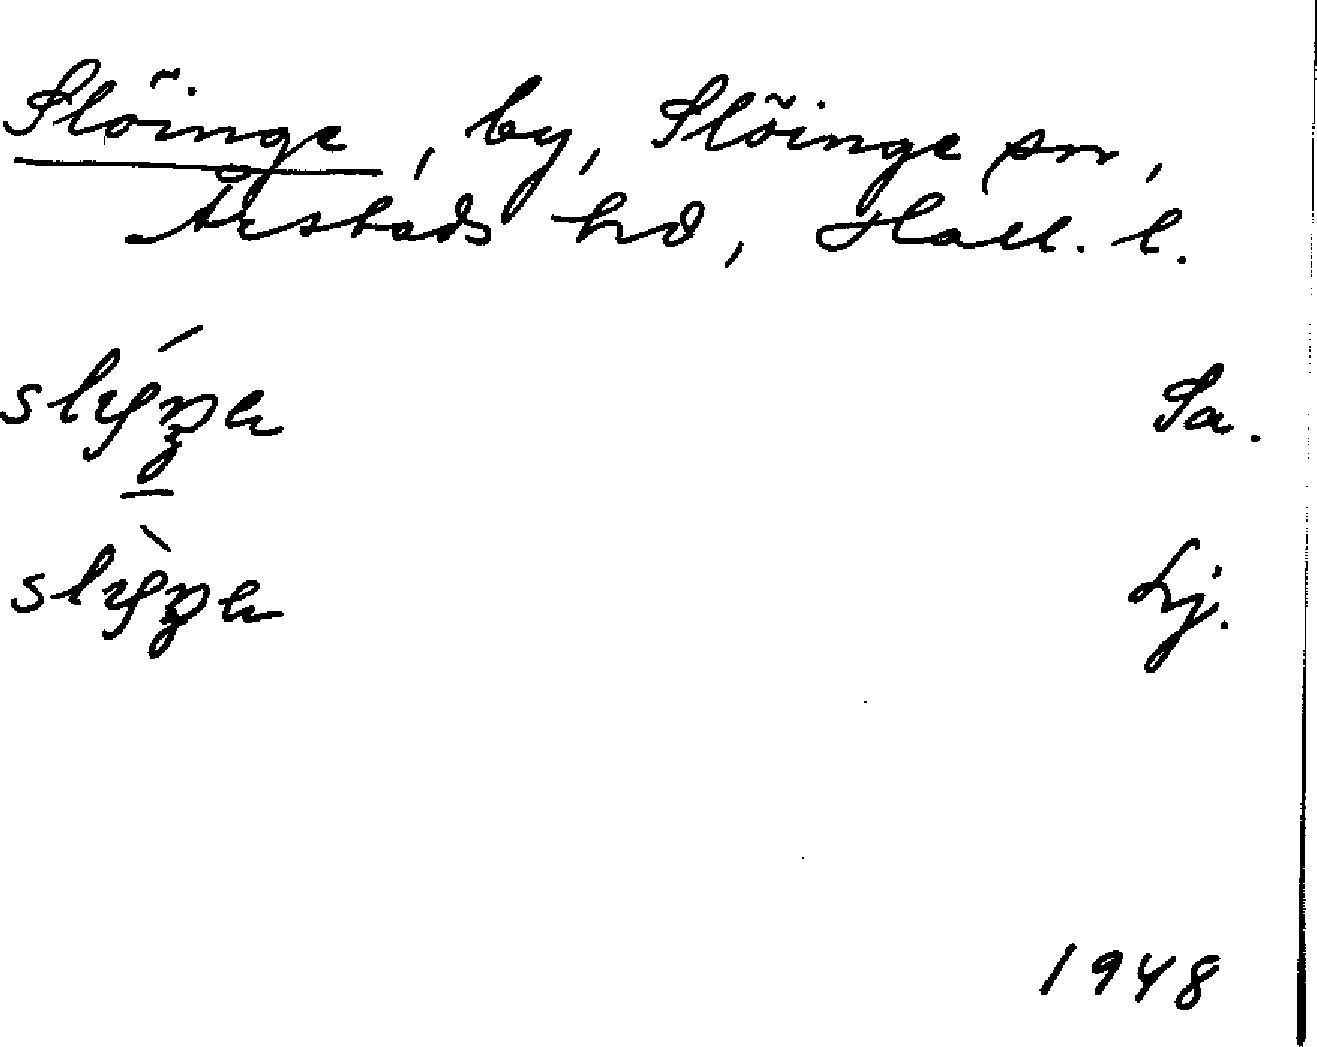 Slöinge, by, Slöinge sn,
Årstads hd, Hall. l.
Sa.
Lj.
1948